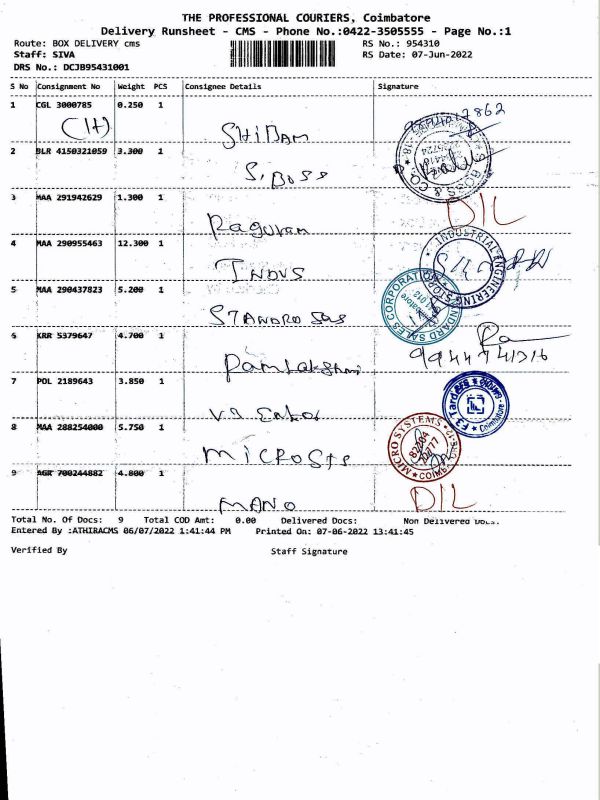 THE PROFESSIONAL COURIERS, Coimbatore
Delivery Runsheet - CMS - Phone No.:0422-3505555 - Page No.:1
Route: BOX DELIVERY cms RS No.: 954310
Staff: SIVA RS Date: 07-Jun-2022
DRS No.: DCJB95431001
S No Consignment No Weight PCS Consignee Details Signature
1 CGL 3000785 0.250 1
(14)
2 BLR 4150321059 3.300 1
S. BOSS
3 MAA 291942629 1.300 1
Raguram DIL
4 MAA 290955463 12.300 1
INDUS INDUSTRIAL ENGINEERING STORES
5 MAA 290437823 5.200 1
STANDARD SALES CORPORATION
6 KRR 5379647 4.700 1
Ramlakshmi
7 POL 2189643 3.850 1
F3 Tarders Coimbatore
8 MAA 288254000 5.750 1
MICROSYS MICRO SYSTEMS
9 AGR 700244882 4.800 1
MANO DIL
Total No. Of Docs: 9 Total COD Amt: 0.00 Delivered Docs: Non Delivered Docs:
Entered By :ATHIRACMS 06/07/2022 1:41:44 PM Printed On: 07-06-2022 13:41:45
Verified By Staff Signature